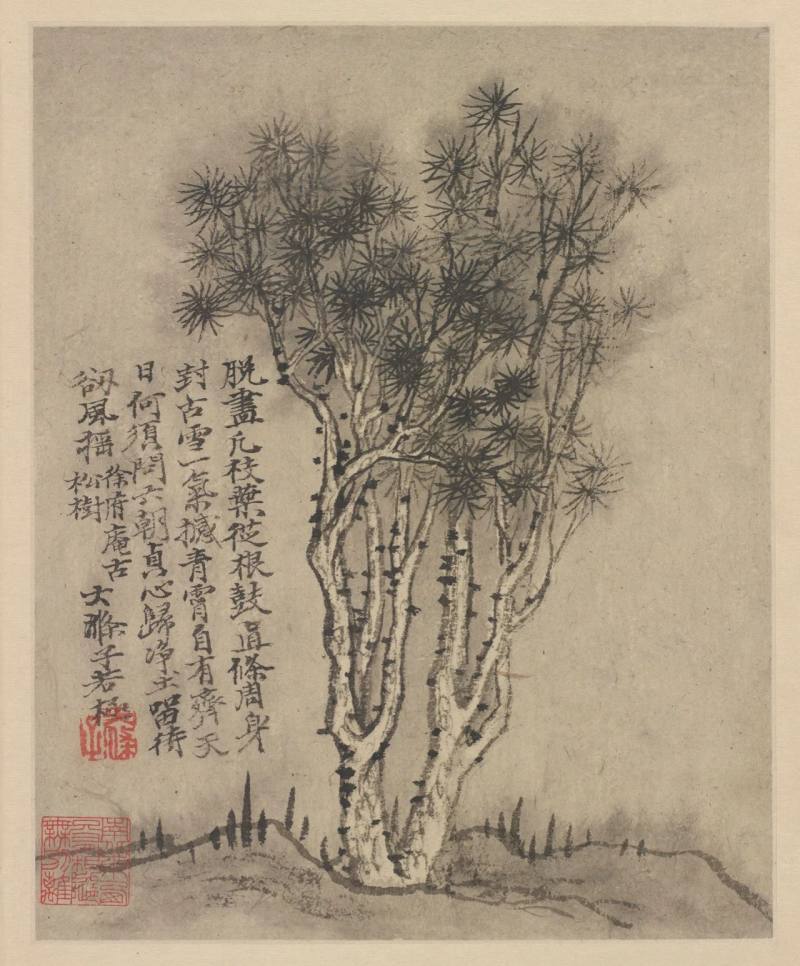 脫盡凡枝葉從根鼓直條周身
封古雪一氣撼青霄自有齊天
日何須問六朝貞心歸淨土留待
衲風搖
徐府庵古
松樹
大滌子若極